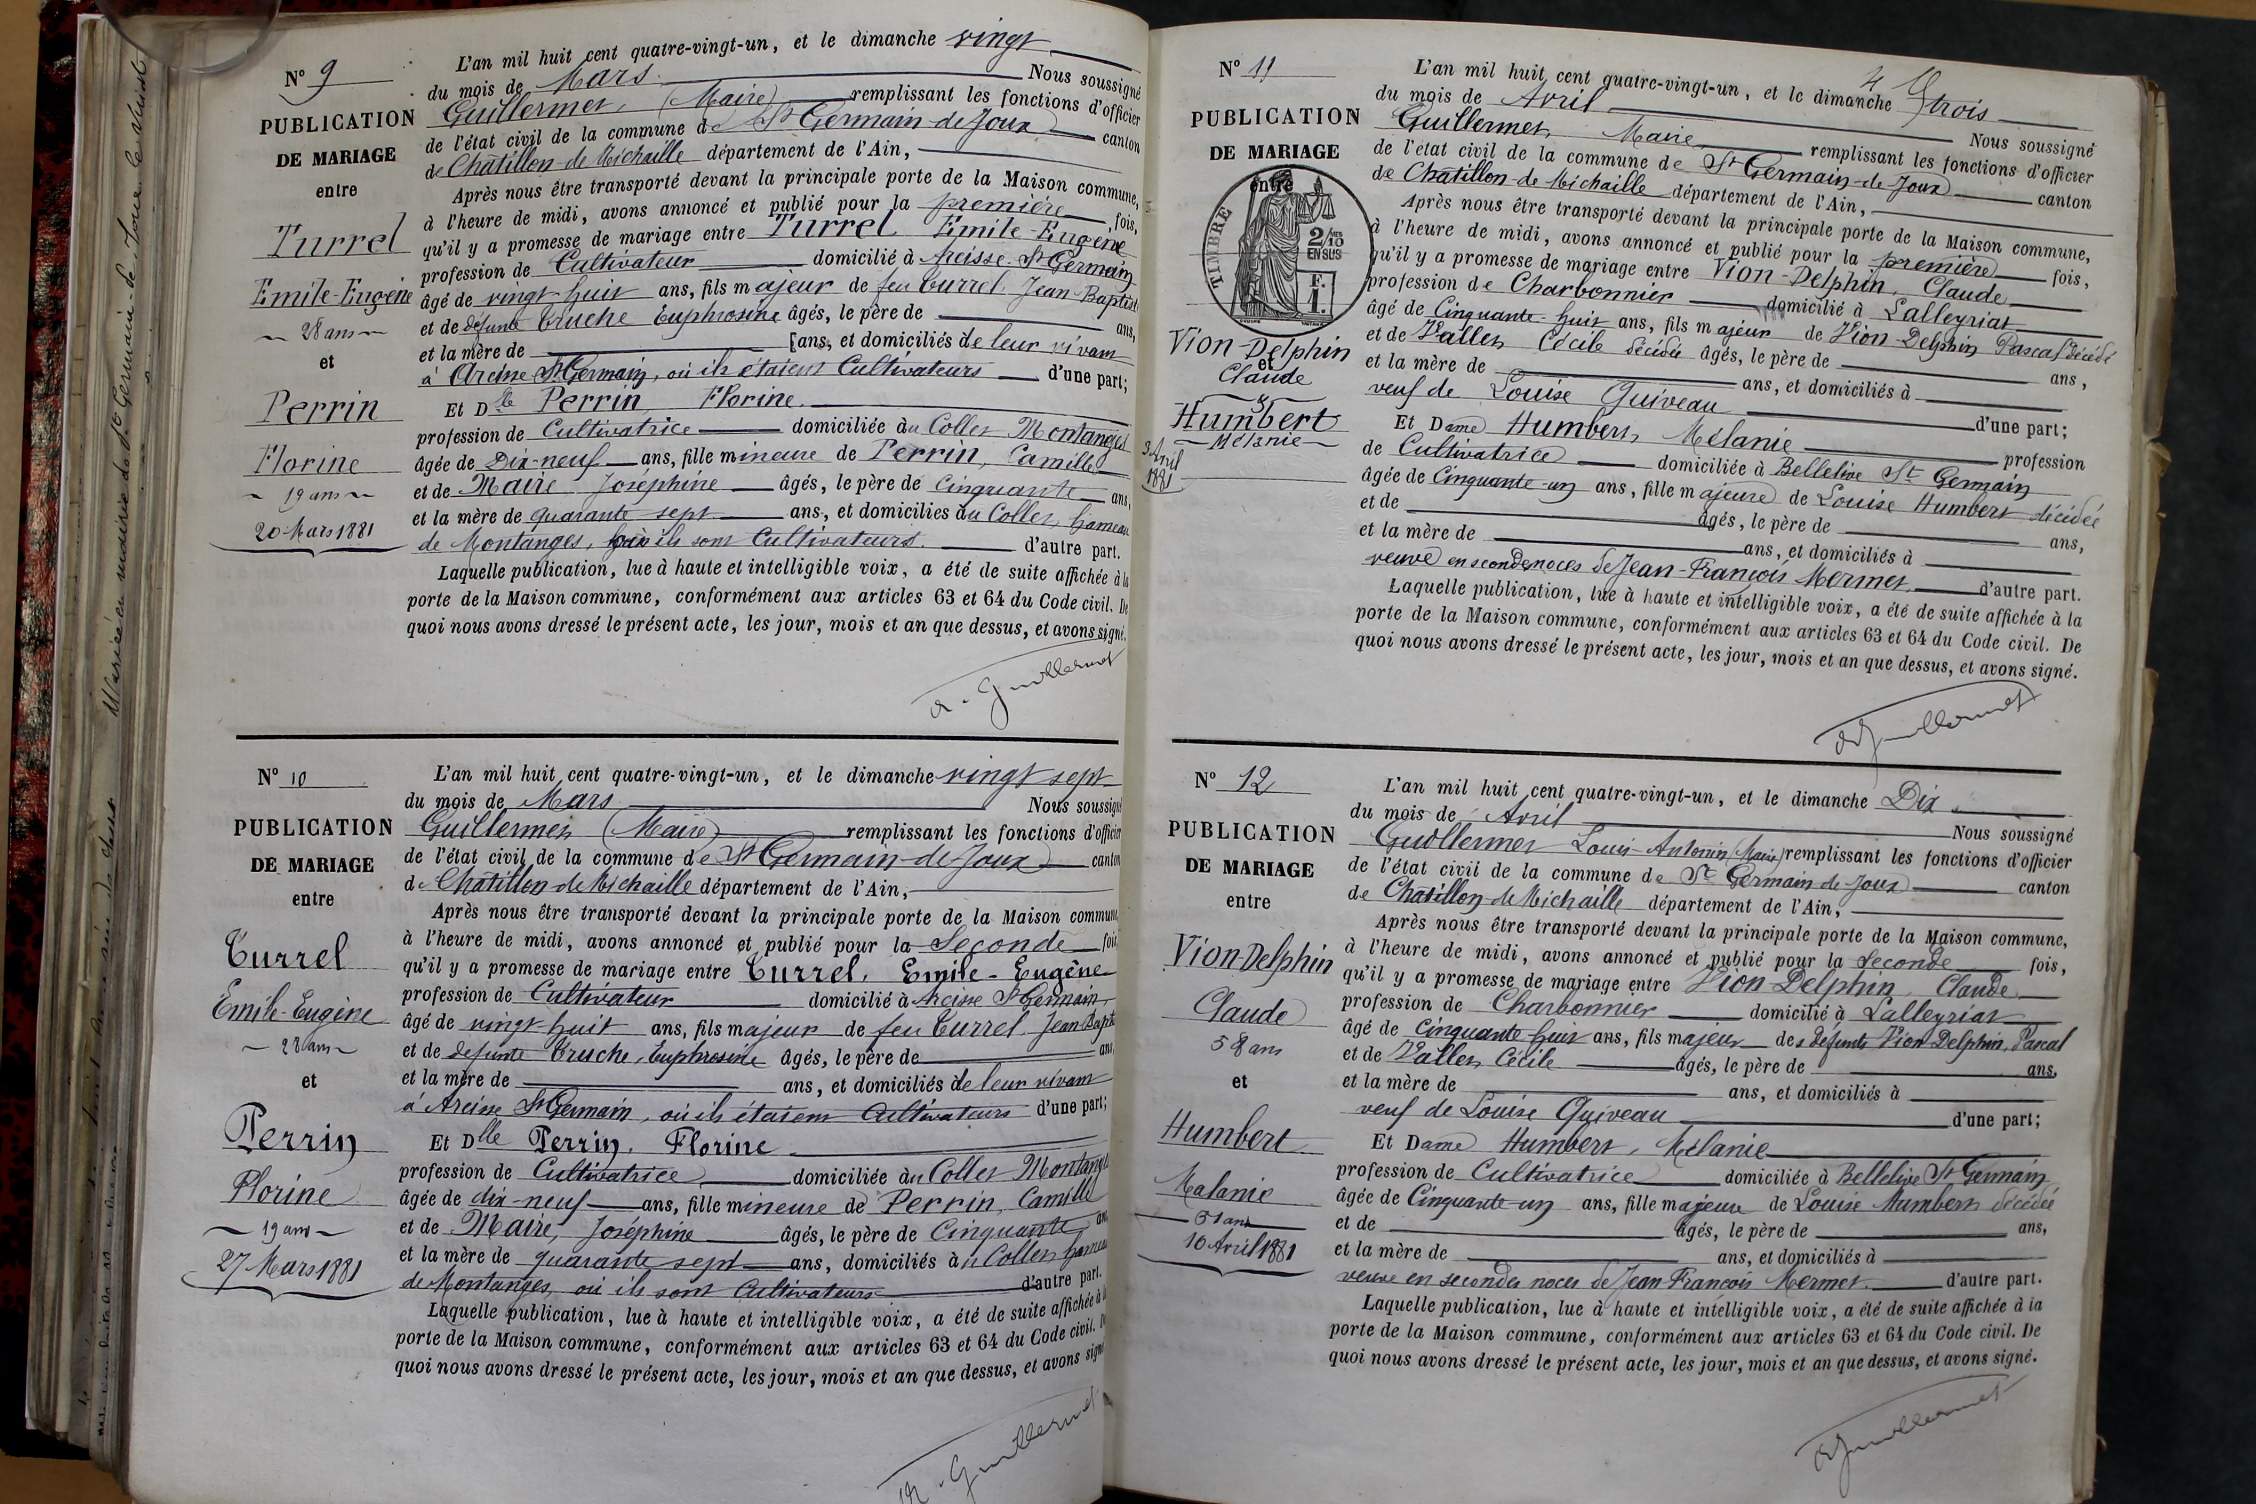 N° 9
PUBLICATION
DE MARIAGE
entre
Turrel
Emile-Eugène
28 ans
et
Perrin
Florine
19 ans
20 Mars 1881
L'an mil huit cent quatre-vingt-un, et le dimanche vingt
du mois de Mars Nous soussigné
Guillermet, (Maire) remplissant les fonctions d'officier
de l'état civil de la commune de St Germain-de-Joux canton
de Chatillon-de-Michaille département de l'Ain,
Après nous être transporté devant la principale porte de la Maison commune,
à l'heure de midi, avons annoncé et publié pour la première fois,
qu'il y a promesse de mariage entre Turrel Emile-Eugène
profession de Cultivateur domicilié à Arcisse St Germain
âgé de vingt-huit ans, fils majeur de feu Turrel Jean-Baptiste
et de défunte Truche Euphrosine âgés, le père de ans,
et la mère de ans, et domiciliés de leur vivant
à Arcisse St Germain, où ils étaient Cultivateurs d'une part;
Et Dlle Perrin Florine
profession de Cultivatrice domiciliée au Collet Montanges
âgée de Dix-neuf ans, fille mineure de Perrin, Camille
et de Maire Joséphine âgés, le père de cinquante ans,
et la mère de quarante sept ans, et domiciliés au Collet, hameau
de Montanges, où ils sont Cultivateurs. d'autre part.
Laquelle publication, lue à haute et intelligible voix, a été de suite affichée à la
porte de la Maison commune, conformément aux articles 63 et 64 du Code civil. De
quoi nous avons dressé le présent acte, les jour, mois et an que dessus, et avons signé.
A. Guillermet
N° 10
PUBLICATION
DE MARIAGE
entre
Turrel
Emile-Eugène
28 ans
et
Perrin
Florine
19 ans
27 Mars 1881
L'an mil huit cent quatre-vingt-un, et le dimanche vingt sept
du mois de Mars Nous soussigné
Guillermet (Maire) remplissant les fonctions d'officier
de l'état civil de la commune de St Germain-de-Joux canton
de Chatillon de Michaille département de l'Ain,
Après nous être transporté devant la principale porte de la Maison commune,
à l'heure de midi, avons annoncé et publié pour la Seconde fois,
qu'il y a promesse de mariage entre Turrel, Emile-Eugène
profession de Cultivateur domicilié à Arcisse St Germain,
âgé de vingt-huit ans, fils majeur de feu Turrel Jean-Bapt
et de défunte Truche, Euphrosine âgés, le père de ans,
et la mère de ans, et domiciliés de leur vivant
à Arcisse St Germain, où ils étaient Cultivateurs d'une part;
Et Dlle Perrin, Florine
profession de Cultivatrice domiciliée au Collet Montanges
âgée de dix-neuf ans, fille mineure de Perrin, Camille
et de Maire, Joséphine âgés, le père de Cinquante ans
et la mère de quarante sept ans, domiciliés au Collet hameau
de Montanges, où ils sont Cultivateurs d'autre part.
Laquelle publication, lue à haute et intelligible voix, a été de suite affichée à la
porte de la Maison commune, conformément aux articles 63 et 64 du Code civil. De
quoi nous avons dressé le présent acte, les jour, mois et an que dessus, et avons signé
A. Guillermet
N° 11
PUBLICATION
DE MARIAGE
entre
TIMBRE
2/10
EN SUS
F.
1.
Vion-Delphin
et
Claude
Humbert
Mélanie
3 Avril
1881
L'an mil huit cent quatre-vingt-un, et le dimanche trois
du mois de Avril Nous soussigné
Guillermet, Maire, remplissant les fonctions d'officier
de l'état civil de la commune de St Germain-de-Joux canton
de Chatillon-de-Michaille département de l'Ain,
Après nous être transporté devant la principale porte de la Maison commune,
à l'heure de midi, avons annoncé et publié pour la première fois,
qu'il y a promesse de mariage entre Vion-Delphin, Claude
profession de Charbonnier domicilié à Lalleyriat
âgé de Cinquante-huit ans, fils majeur de Vion-Delphin Pascal décédé
et de Vallet Cécile décédée âgés, le père de ans,
et la mère de ans, et domiciliés à
veuf de Louise Quiveau d'une part;
Et Dame Humbert, Mélanie profession
de Cultivatrice domiciliée à Bellelive St Germain
âgée de Cinquante-un ans, fille majeure de Louise Humbert décédée
et de âgés, le père de ans,
et la mère de ans, et domiciliés à
veuve en secondes noces de Jean-François Mermet, d'autre part.
Laquelle publication, lue à haute et intelligible voix, a été de suite affichée à la
porte de la Maison commune, conformément aux articles 63 et 64 du Code civil. De
quoi nous avons dressé le présent acte, les jour, mois et an que dessus, et avons signé.
A Guillermet
N° 12
PUBLICATION
DE MARIAGE
entre
Vion-Delphin
Claude
58 ans
et
Humbert
Malanie
51 ans
10 Avril 1881
L'an mil huit cent quatre-vingt-un, et le dimanche Dix
du mois de Avril Nous soussigné
Guillermet Louis-Antonin (Maire) remplissant les fonctions d'officier
de l'état civil de la commune de St Germain de Joux canton
de Chatillon-de-Michaille département de l'Ain,
Après nous être transporté devant la principale porte de la Maison commune,
à l'heure de midi, avons annoncé et publié pour la seconde fois,
qu'il y a promesse de mariage entre Vion-Delphin, Claude
profession de Charbonnier domicilié à Lalleyriat
âgé de Cinquante-huit ans, fils majeur des défunts Vion Delphin, Pascal
et de Vallet Cécile âgés, le père de ans,
et la mère de ans, et domiciliés à
veuf de Louise Quiveau d'une part;
Et Dame Humbert, Mélanie
profession de Cultivatrice domiciliée à Bellelive St Germain
âgée de Cinquante un ans, fille majeure de Louise Humbert décédée
et de âgés, le père de ans,
et la mère de ans, et domiciliés à
veuve en secondes noces de Jean François Mermet. d'autre part.
Laquelle publication, lue à haute et intelligible voix, a été de suite affichée à la
porte de la Maison commune, conformément aux articles 63 et 64 du Code civil. De
quoi nous avons dressé le présent acte, les jour, mois et an que dessus, et avons signé.
A Guillermet